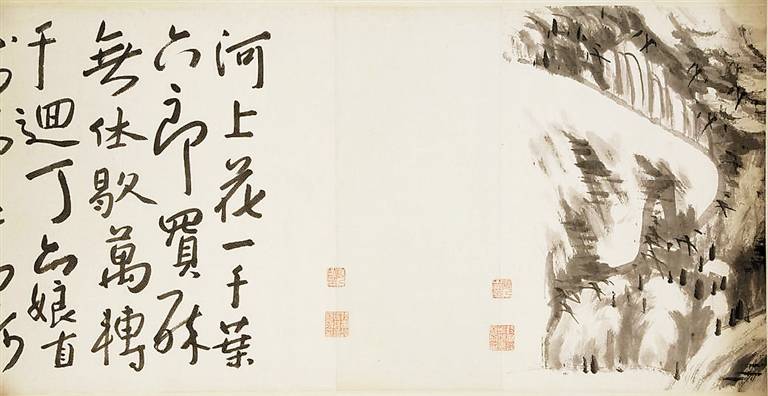 河上花一千葉
六郎買醉
無休歇萬轉
千迴丁六娘直